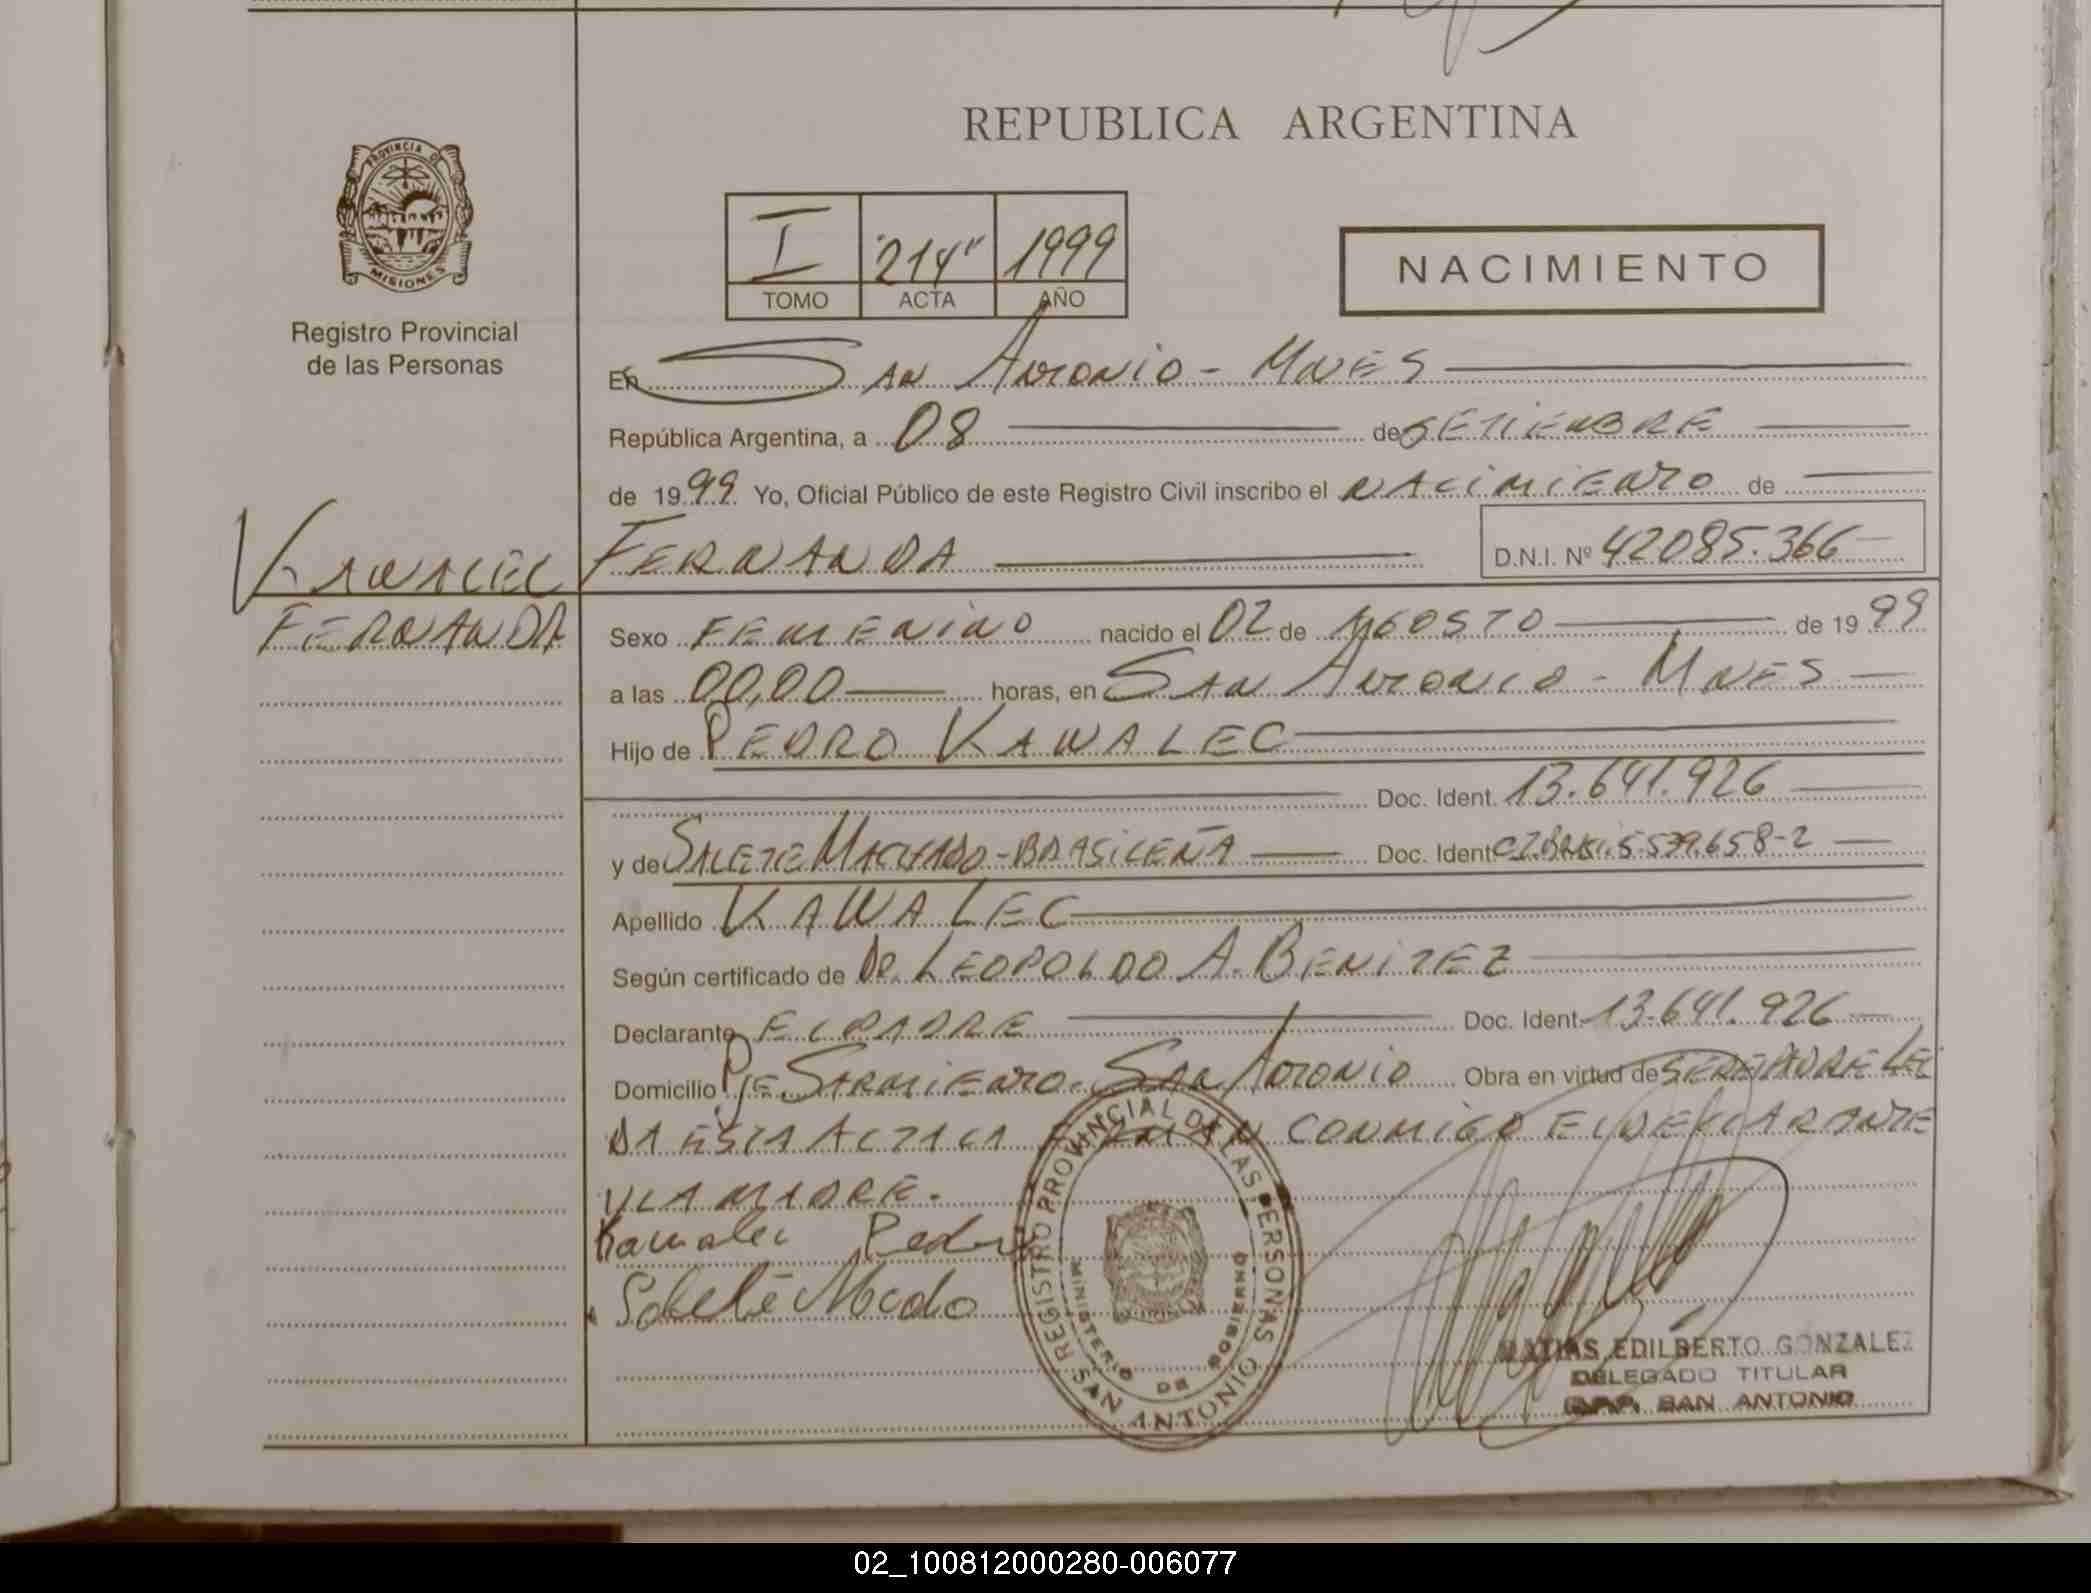 REPUBLICA ARGENTINA
PROVINCIA DE
MISIONES
Registro Provincial
de las Personas
I "214" 1999
TOMO ACTA AÑO
NACIMIENTO
En SAN ANTONIO - MNES
República Argentina, a 08 de SETIEMBRE
de 1999 Yo, Oficial Público de este Registro Civil inscribo el NACIMIENTO de
KAWALEC FERNANDA D.N.I. Nº 42085.366
FERNANDA
Sexo FEMENINO nacido el 02 de AGOSTO de 1999
a las 00,00 horas, en SAN ANTONIO - MNES
Hijo de PEDRO KAWALEC
Doc. Ident. 13.641.926
y de SALETE MACHADO - BRASILEÑA Doc. Ident. 5.579.658-2
Apellido KAWALEC
Según certificado de DR. LEOPOLDO A. BENITEZ
Declarante EL PADRE Doc. Ident. 13.641.926
Domicilio PJE SARMIENTO. SAN ANTONIO Obra en virtud de SER EL PADRE LEI
DA ESTA ACTA LA FIRMAN CONMIGO EL DECLARANTE
Y LA MADRE.
Kawalec Pedro
Salete
REGISTRO PROVINCIAL DE LAS PERSONAS
MINISTERIO DE GOBIERNO
SAN ANTONIO
MATIAS EDILBERTO GONZALEZ
DELEGADO TITULAR
SAN ANTONIO
02_100812000280-006077